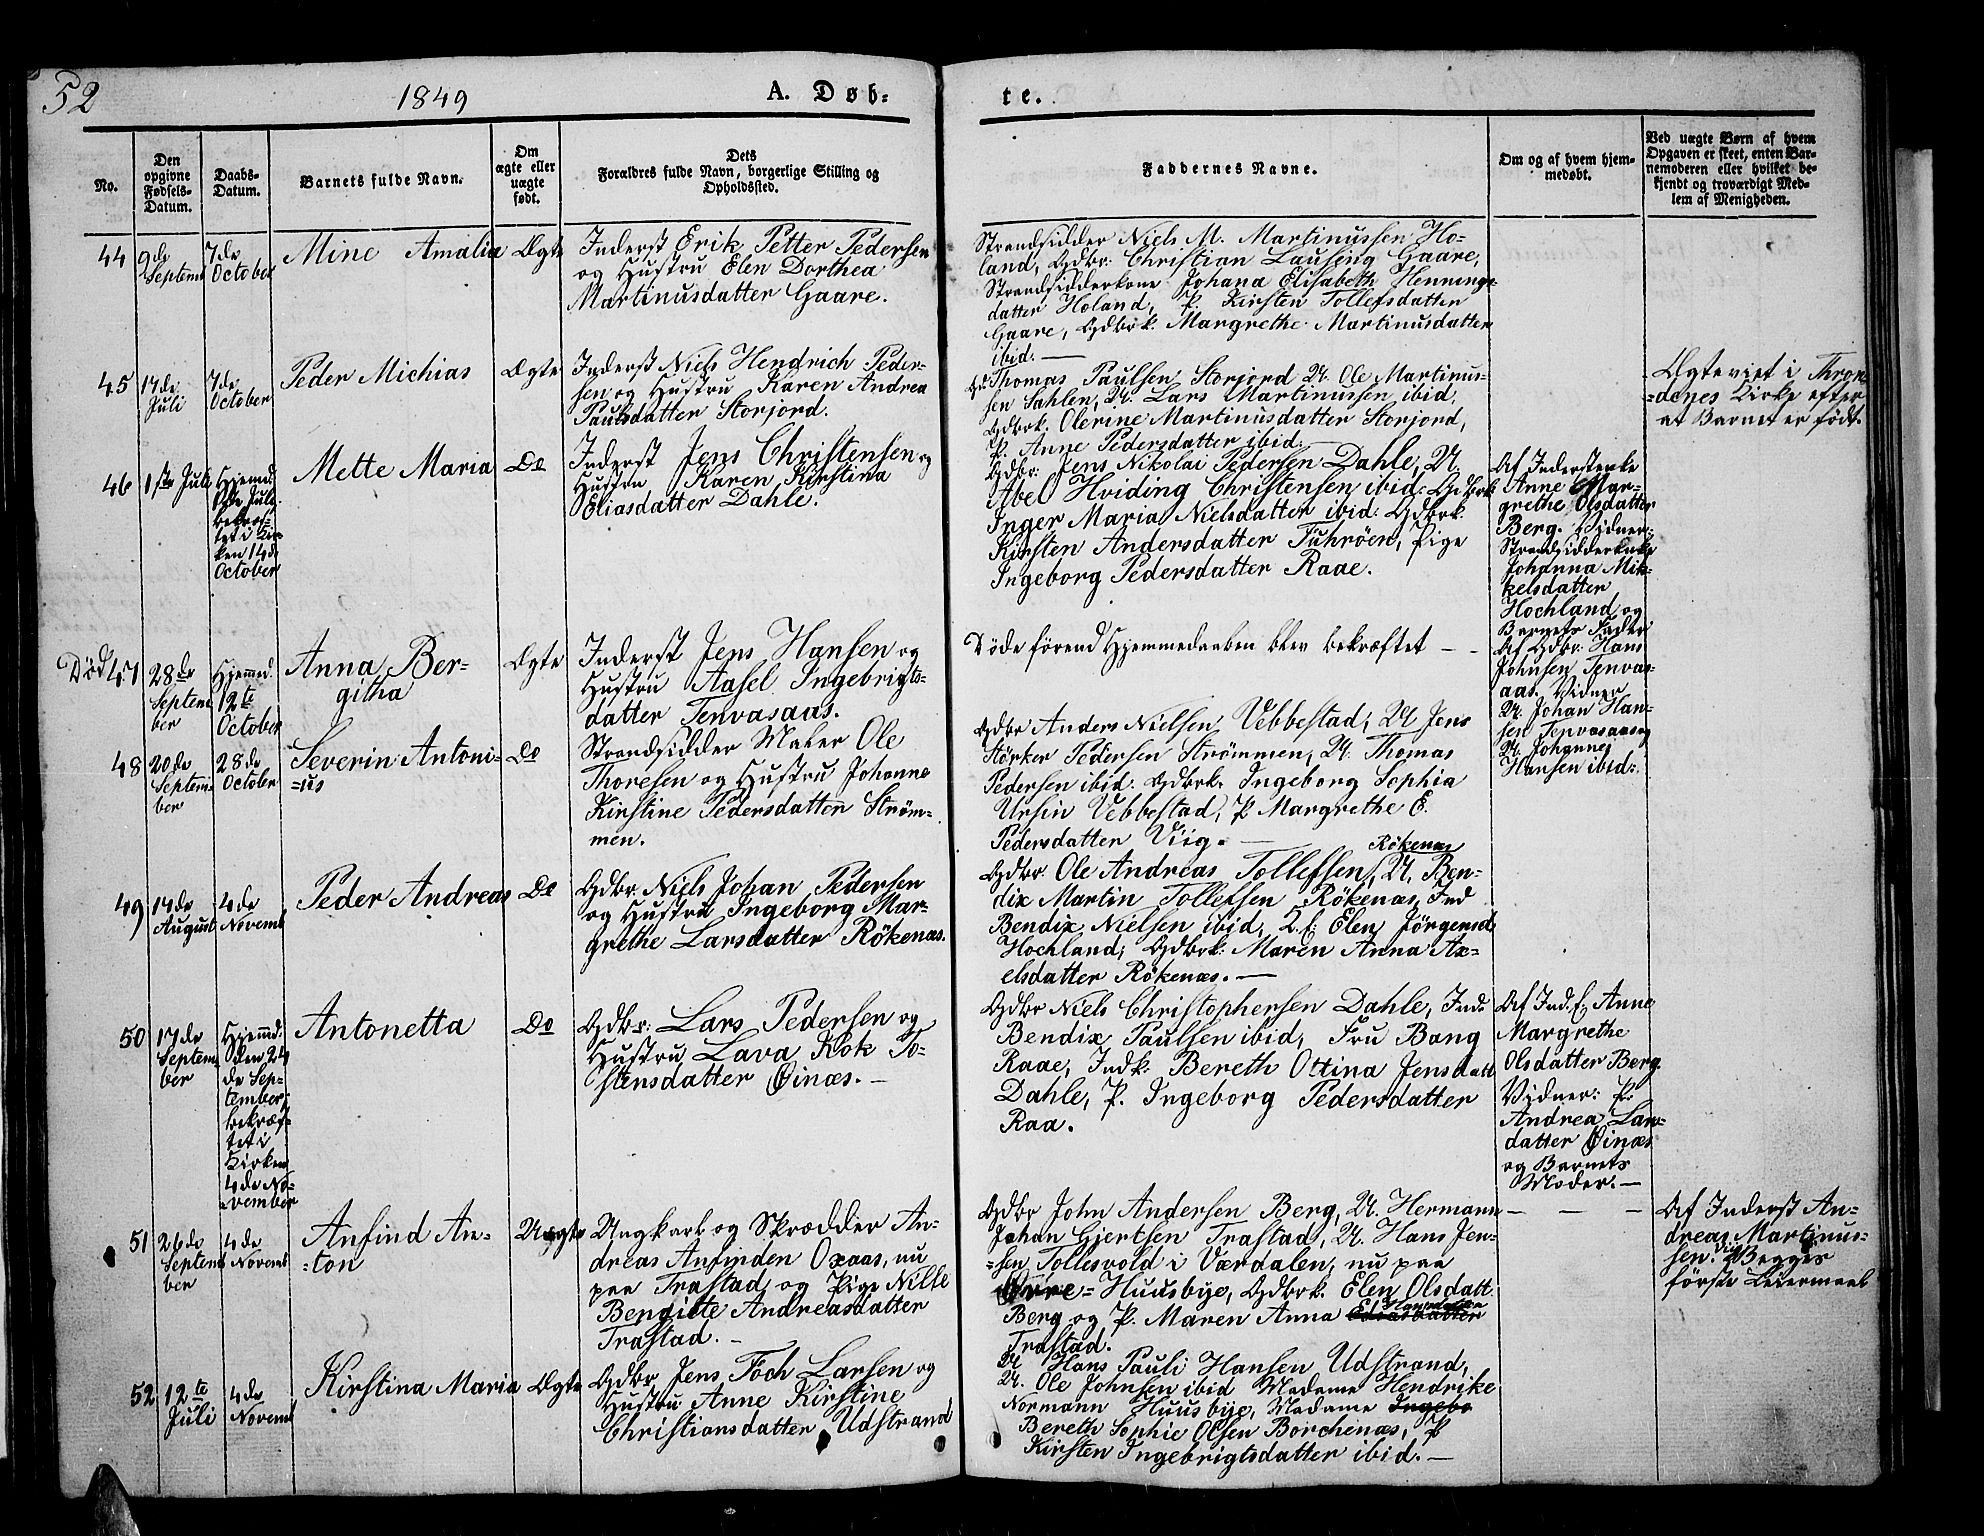 52
1849
A. Døb-
te.
No.
Den opgivne Fødsels-Datum.
Daabs-Datum.
Barnets fulde Navn.
Om ægte eller uægte født.
Dets
Forældres fulde Navn, borgerlige Stilling og
Opholdssted.
Faddernes Navne.
Om og af hvem hjem-
medøbt.
Ved uægte Børn af hvem
Opgaven er skeet, enten Bar-
nemoderen eller hvilket be-
kjendt og troværdigt Med-
lem af Menigheden.
44
9de
Septemb
7de
October
Mine Amalia
Ægte
Inderst Erik Petter Pedersen
og Hustru Elen Dorthea
Martinusdatter Gaare.
Strandsidder Niels M. Martinussen Ho-
land, Gdbr: Christian Lausenq Gaare,
Strandsidderkone Johana Elisabeth Hennings-
datter Holand, P. Kirsten Tollefsdatter
Gaare, Gdbrk. Margrethe Martinusdatter
ibid. —
45
17de
Juli
7de
October
Peder Michias
Ægte
Inderst Niels Hendrich Peder-
sen og Hustru Karen Andrea
Paulsdatter Storjord.
Thomas Paulsen Storjord U. Ole Martinus-
sen Sahlen, U. Lars Martinussen ibid,
Gdbrk. Olerine Martinusdatter Storjord,
P. Anne Pedersdatter ibid. —
Ægteviet i Thron-
=denes Kirke efter
at Barnet er født.
46
1ste Juli
Hjemmd.
Juli
bekræf-
tet i Kir-
ken 14de
October
Mette Maria
Do
Inderst Jens Christensen og
Hustru Karen Kirstina
Eliasdatter Dahle.
Gdbr: Jens Nikolai Pedersen Dahle, U.
Abel Hviding Christensen ibid: Gdbrk
Inger Maria Nielsdatter ibid: Gdbrk.
Kirsten Andersdatter Fuhröen, Pige
Ingeborg Pedersdatter Raae.
Af Inderstenke
Anne Mar-
grethe Olsdatter
Berg. Vidner:
Johanna Mik-
kelsdatter
Hochland og
Barnets Fader
Død
47
28de
Septem
ber
Hjemmd.
12te
October
Anna Ber-
githa
Ægte
Inderst Jens Hansen og
Hustru Aasel Ingebrigts-
datter Tenvasaas.
Døde førend Hjemmedaaben blev bekræftet — -
Af Gdbr: Hans
Johnsen Tenvas-
aas. Vidner
U. Johan Han-
sen Tenvasaas og
U. Johannes
Hansen ibid:.
48
20de
Septem
ber
28de
October
Severin Antoni-
=us
Do
Strandsidder Maler Ole
Thoresen og Hustru Johanne
Kirstine Pedersdatter Ström-
men.
Gdbr Anders Nielsen Vebbestad, U Jens
Störker Pedersen Strömmen, U. Thomas
Pedersen ibid. Gdbrk. Ingeborg Sophia
Ursin Vebbestad, P Margrethe E.
Pedersdatter Viig. —
49
14de
August
4de
Novemb
Peder Andreas
Do
Gdbr. Niels Johan Pedersen
og Hustru Ingeborg Mar-
grethe Larsdatter Rökenæs.
Rökenæs
Gdbr. Ole Andreas Tollefsen, U. Ben-
dix Martin Tollefsen Rökenæs, Ind
Bendix Nielsen ibid, Elen Jörgensd
Hochland, Gdbrk: Maren Anna Ax-
elsdatter Rökenæs. —
50
17de
Septem
ber
Hjemmd:
den 24
de Sep-
tember,
bekræf-
tet i
Kirken
4de No-
=vember
Antonetta
Do
Gdbr: Lars Pedersen og
Hustru Lava Klok To-
stensdatter Öinæs. —
Gdbr Niels Christophersen Dahle, Ind.
Bendix Paulsen ibid, Fru Bang
Raae, Indk. Bereth Ottina Jensdatt
Dahle, P. Ingeborg Pedersdatter
Raa.
Af Ind.E. Anne
Margrethe
Olsdatter Berg.
Vidner: P.
Andrea Lars-
datter Öinæs
og Barnets
Moder. —
51
26de
Septem
ber
4de
Novemb
Anfind An-
=ton
Uægte
Ungkarl og Skrædder An-
dreas Anfinden Oxaas, nu
paa Trastad, og Pige Nille
Bengitte Andreasdatter
Trastad. —
Gdbr John Andersen Berg, U. Hermann
Johan Gjertsen Trastad, U. Hans Jen-
=sen Tollesvold i Værdalen, nu paa
Övre=Huusbye, Gdbrk. Elen Olsdatt
Berg og P. Maren Anna Hansdatter
Trastad.
— — —
Af Inderst An-
dreas Martinus-
sen. Begges
første Leiermaal
52
12te
Juli
4de
Novemb
Kirstina Maria
Ægte
Gdbr Jens Foch Larsen og
Hustru Anne Kirstine
Christiansdatter Udstrand
U Hans Pauli Hansen Udstrand,
U. Ole Johnsen ibid Madame Hendrike
Normann Huusbye, Madame Ingebo
Bereth Sophie Olsen Borchenæs, P
Kirsten Ingebrigtsdatter ibid. —